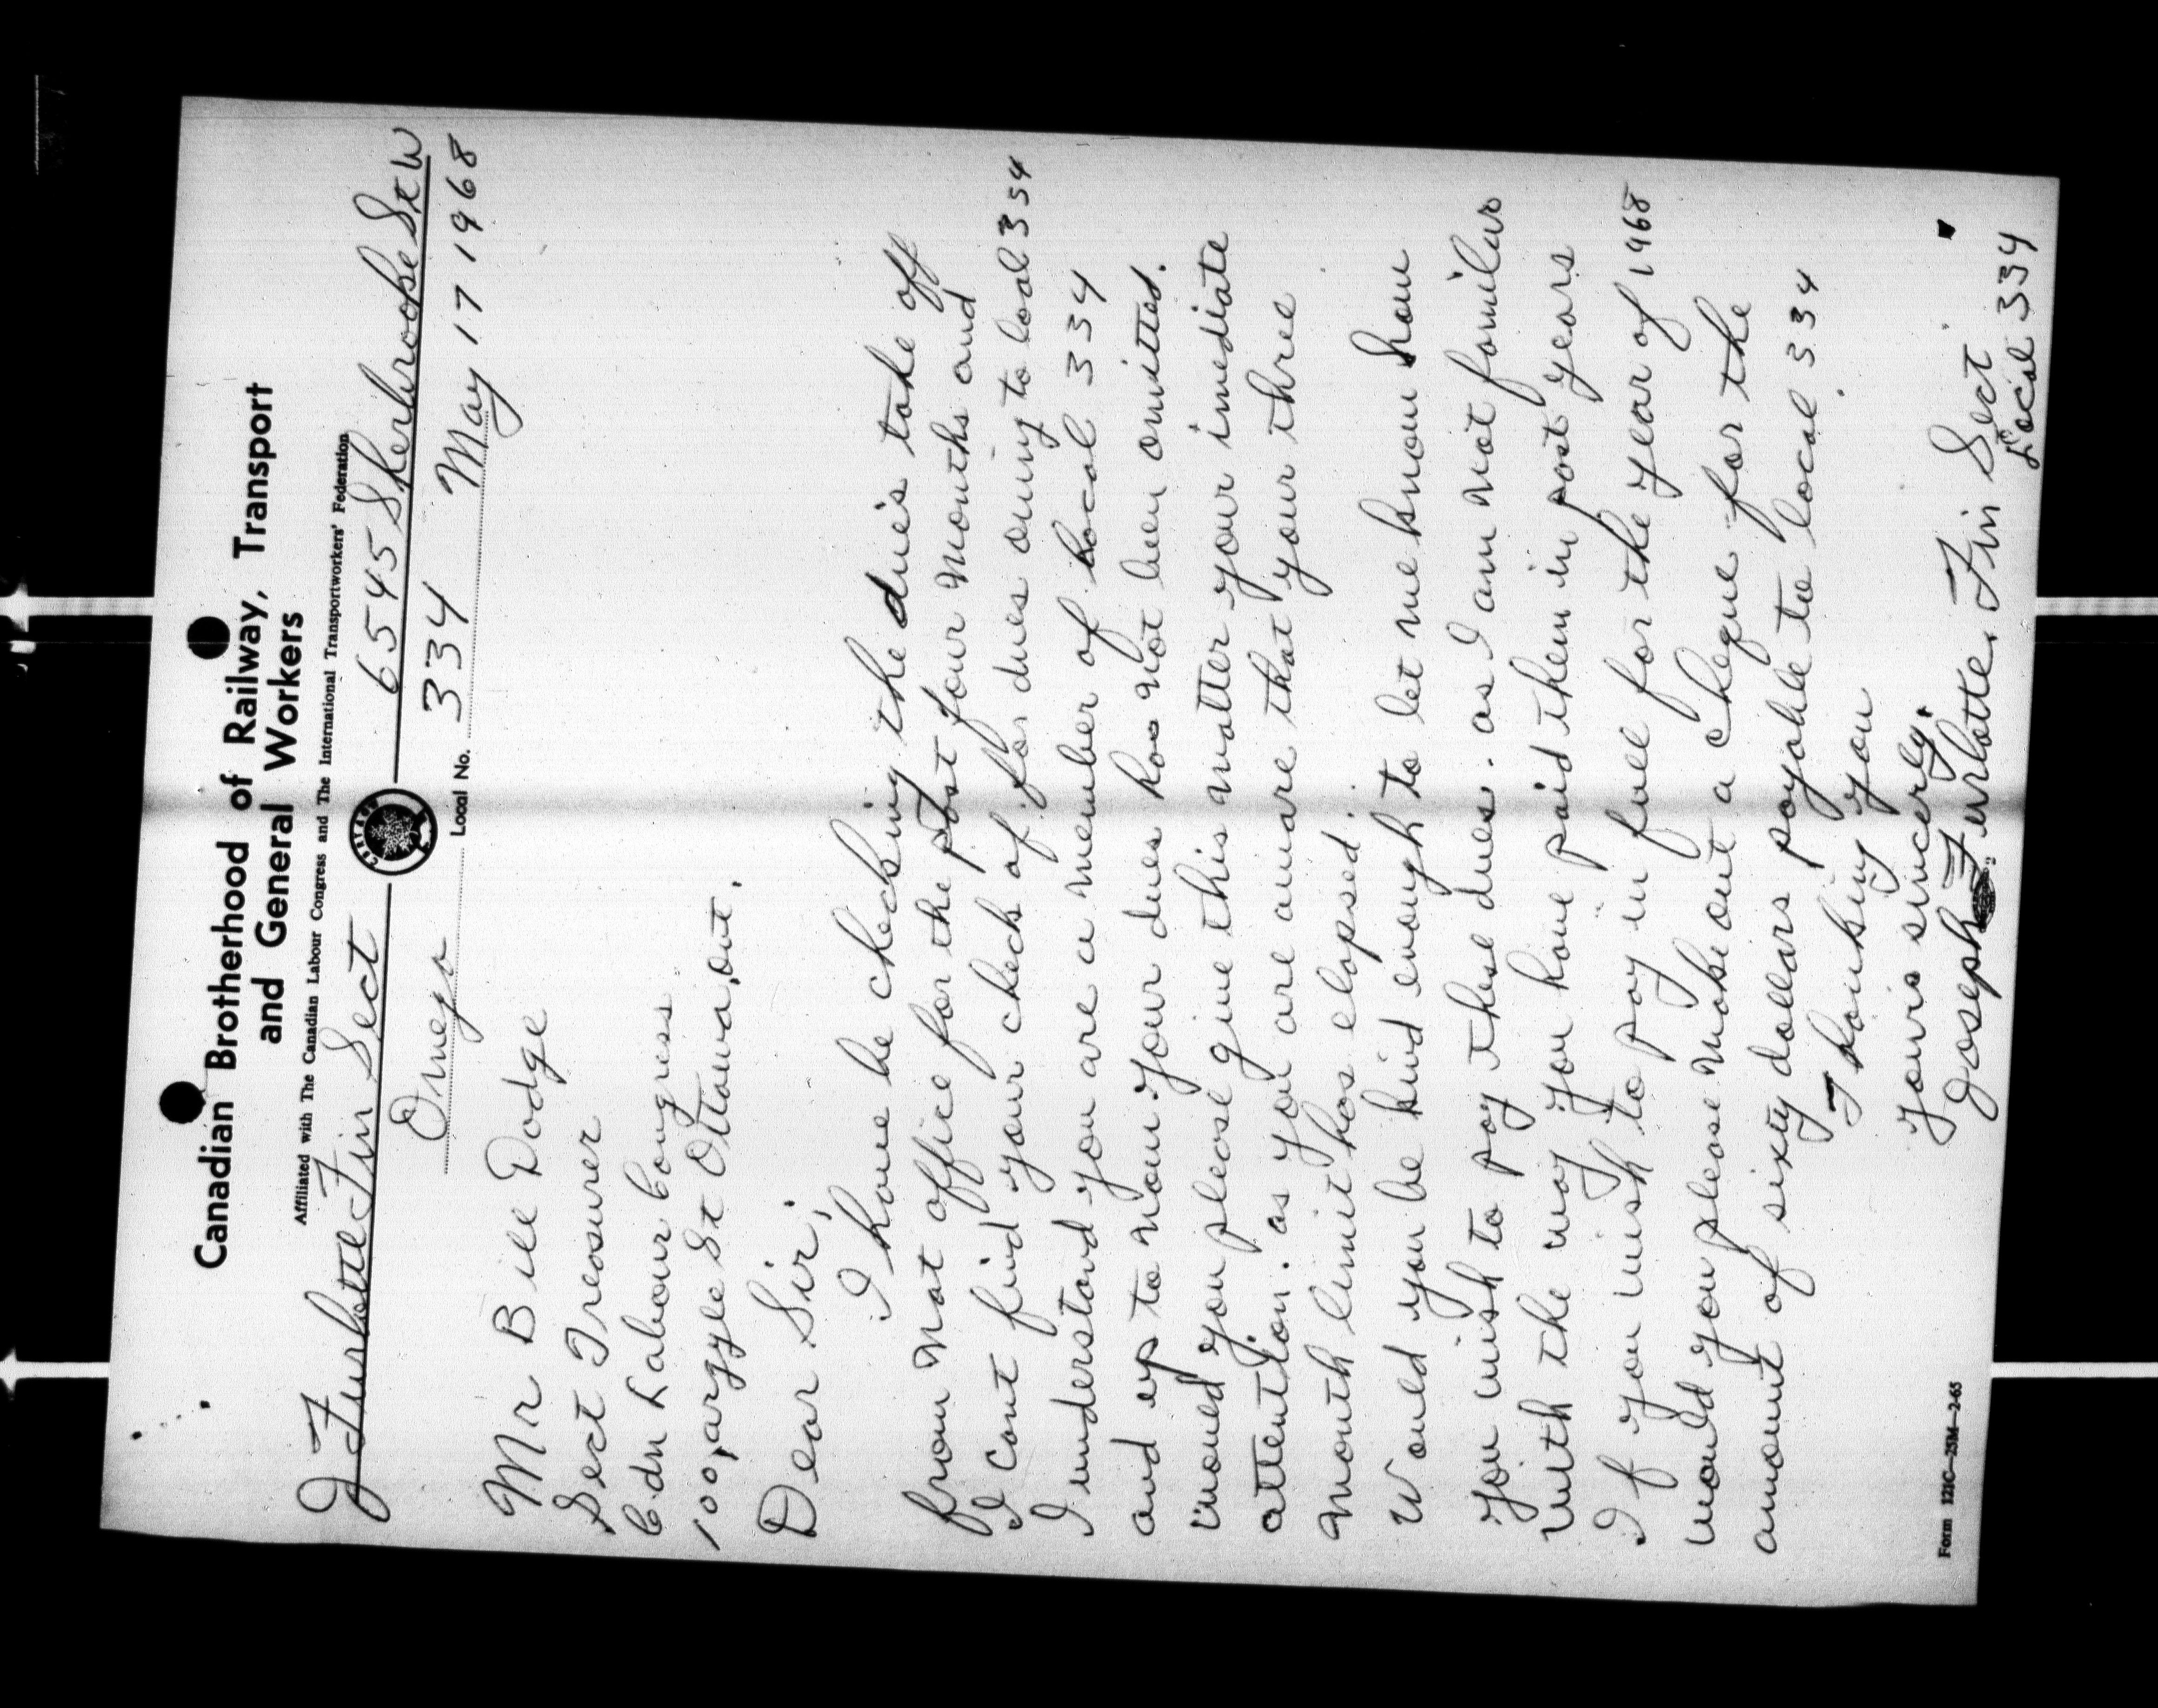 Canadian Brotherhood of Railway, Transport
and General Workers
Affiliated with The Canadian Labour Congress and The International Transportworkers' Federation
J Furlotte Fin Sect 6545 Sherbrooke St W
Omega Local No. 334 May 17 1968
Mr Bill Dodge
Sect Treasurer
C.dn Labour Congress
100, argyle St Ottawa, ont.
Dear Sir;
I have be checking the due's take off
from Nat office for the past four months and
I cant find your check of for dues owing to local 334
I understand you are a member of Local 334
and up to now your dues has not been omitted.
would you please give this matter your imediate
attention. as you are aware that your three
month limit has elapsed.
Would you be kind enough to let me know how
you wish to pay these dues. as I am not familar
with the way you have paid them in past years
If you wish to pay in full for the year of 1968
would you please make out a cheque for the
amount of sixty dollars payable to local 334.
Thanking you
yours sincerly,
Joseph Furlotte. Fin Sect
Local 334
Form 121C—25M—2-65